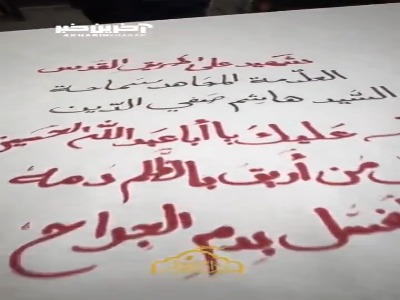 آخرین خبر
AKHARINKHABAR
شهيد على طريق القدس
العلامة المجاهد سماحة
السيد هاشم صفي الدين
عليك يا أبا عبد الله الحسين
من أريق بالظلم دمه
بدم الجراح